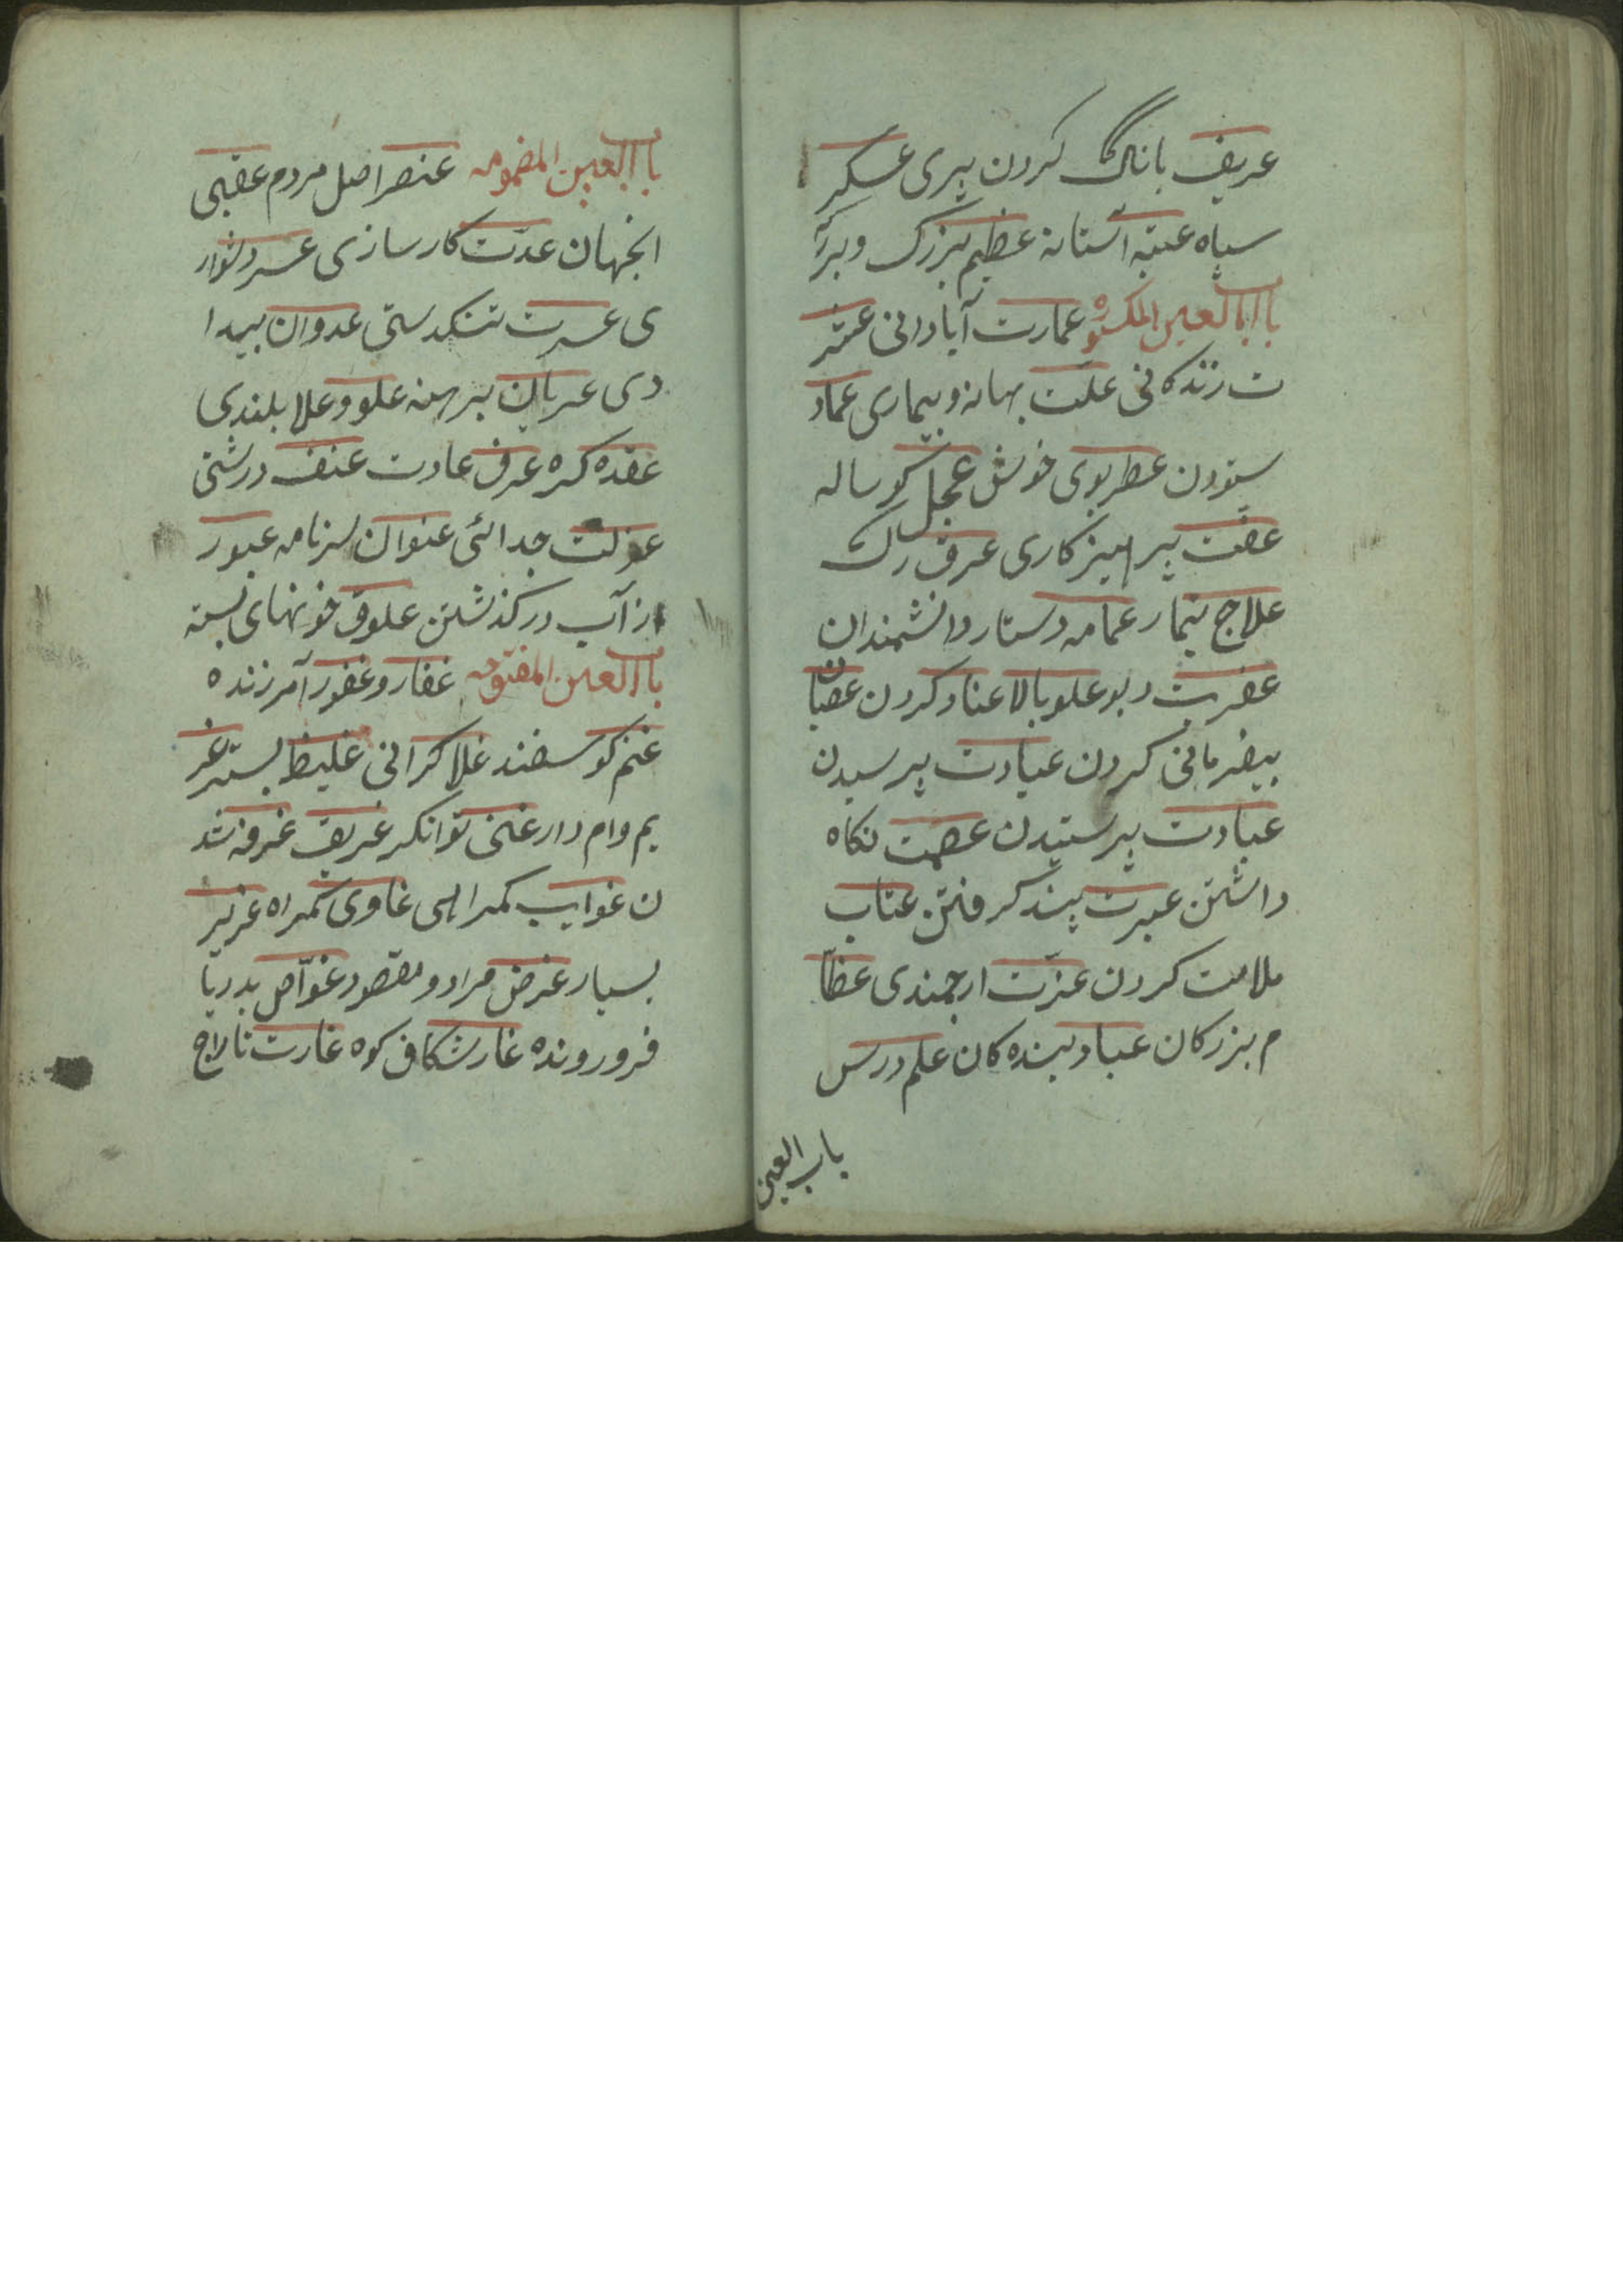 عریف بانگ کردن پیری عسکر
سپاه عتبه آستانه عظیم بزرک و بزرک
باب العین المکسوره عمارت آبادانی عشر
ت زندکانی علّت بهانه و بیماری عماد
ستودن عطر بوی خوش عجل کوساله
عفّت پرهیزکاری عرق رک
علاج تیمار عمامه دستار دانشمندان
عفریت دیو علو بالا عناد کردن عصیان
بیفرمانی کردن عیادت پرسیدن
عبادت پرستیدن عصمت نکاه
داشتن عبرت پند کرفتن عتاب
ملامت کردن عزّت ارجمندی عظا
م بزرکان عباد بنده کان علم درس
باب العین
باب العین المضمومه عنصر اصل مردم عقبی
انجهان عدّت کارسازی عسر دشوار
ی عسرت تنکدستی عدوان بیدا
دی عریان برهنه علو و علا بلندی
عقده کره عرف عادت عنف درشتی
عزلت جدائی عنوان سرنامه عبور
از آب درکذشتن علوق خونهای بسته
باب الغین المفتوحه غفار و غفور آمرزنده
غنم کوسفند غلا کرانی غلیظ بسته غر
یم وام دار غنی توانکر غریق غرقه شد
ن غوایب کمراهی غاوی کمراه غزیر
بسیار غرض مراد و مقصود غوّاص بدریا
فرو رونده غار شکاف کوه غارت تاراج